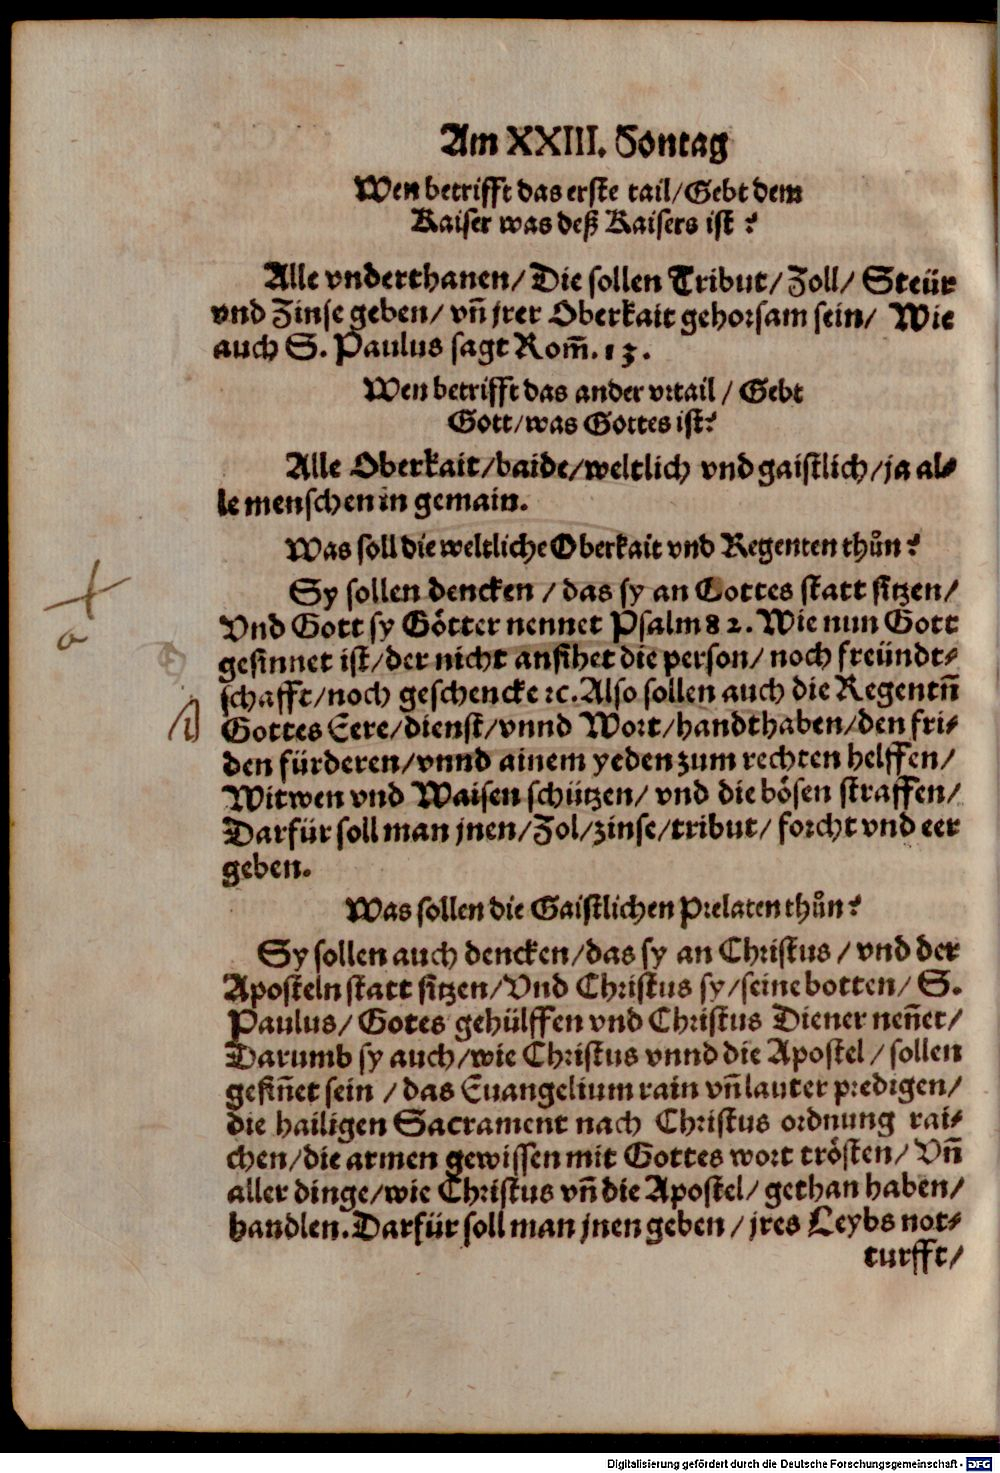 Am XXIII. Sontag
Wen betrifft das erste tail/Gebt dem
Kaiser was deß Kaisers ist?
Alle vnderthanen/Die sollen Tribut/Zoll/Steür
vnd Zinse geben/vn̄ jrer Oberkait gehorsam sein/ Wie
auch S. Paulus sagt Rom̄. 13.
Wen betrifft das ander vrtail/ Gebt
Gott/was Gottes ist?
Alle Oberkait/baide/weltlich vnd gaistlich/ja al-
le menschen in gemain.
Was soll die weltliche Oberkait vnd Regenten thůn?
Sy sollen dencken/das sy an Gottes statt sitzen/
Vnd Gott sy Götter nennet Psalm 82. Wie nun Gott
gesinnet ist/der nicht ansihet die person/noch freündt-
schafft/noch geschencke ꝛc. Also sollen auch die Regentn̄
Gottes Eere/dienst/vnnd Wort/handthaben/den fri-
den fürderen/vnnd ainem yeden zum rechten helffen/
Witwen vnd Waisen schützen/ vnd die bösen straffen/
Darfür soll man jnen/Zol/zinse/tribut/ forcht vnd eer
geben.
Was sollen die Gaistlichen Prelaten thůn?
Sy sollen auch dencken/das sy an Christus/ vnd der
Aposteln statt sitzen/Vnd Christus sy/seine botten/ S.
Paulus/ Gotes gehülffen vnd Christus Diener nen̄et/
Darumb sy auch/wie Christus vnnd die Apostel/ sollen
gesin̄et sein/das Euangelium rain vn̄ lauter predigen/
die hailigen Sacrament nach Christus ordnung rai-
chen/die armen gewissen mit Gottes wort trösten/ Vn̄
aller dinge/wie Christus vn̄ die Apostel/ gethan haben/
handlen. Darfür soll man jnen geben/ jres Leybs not-
turfft/
Digitalisierung gefördert durch die Deutsche Forschungsgemeinschaft - DFG